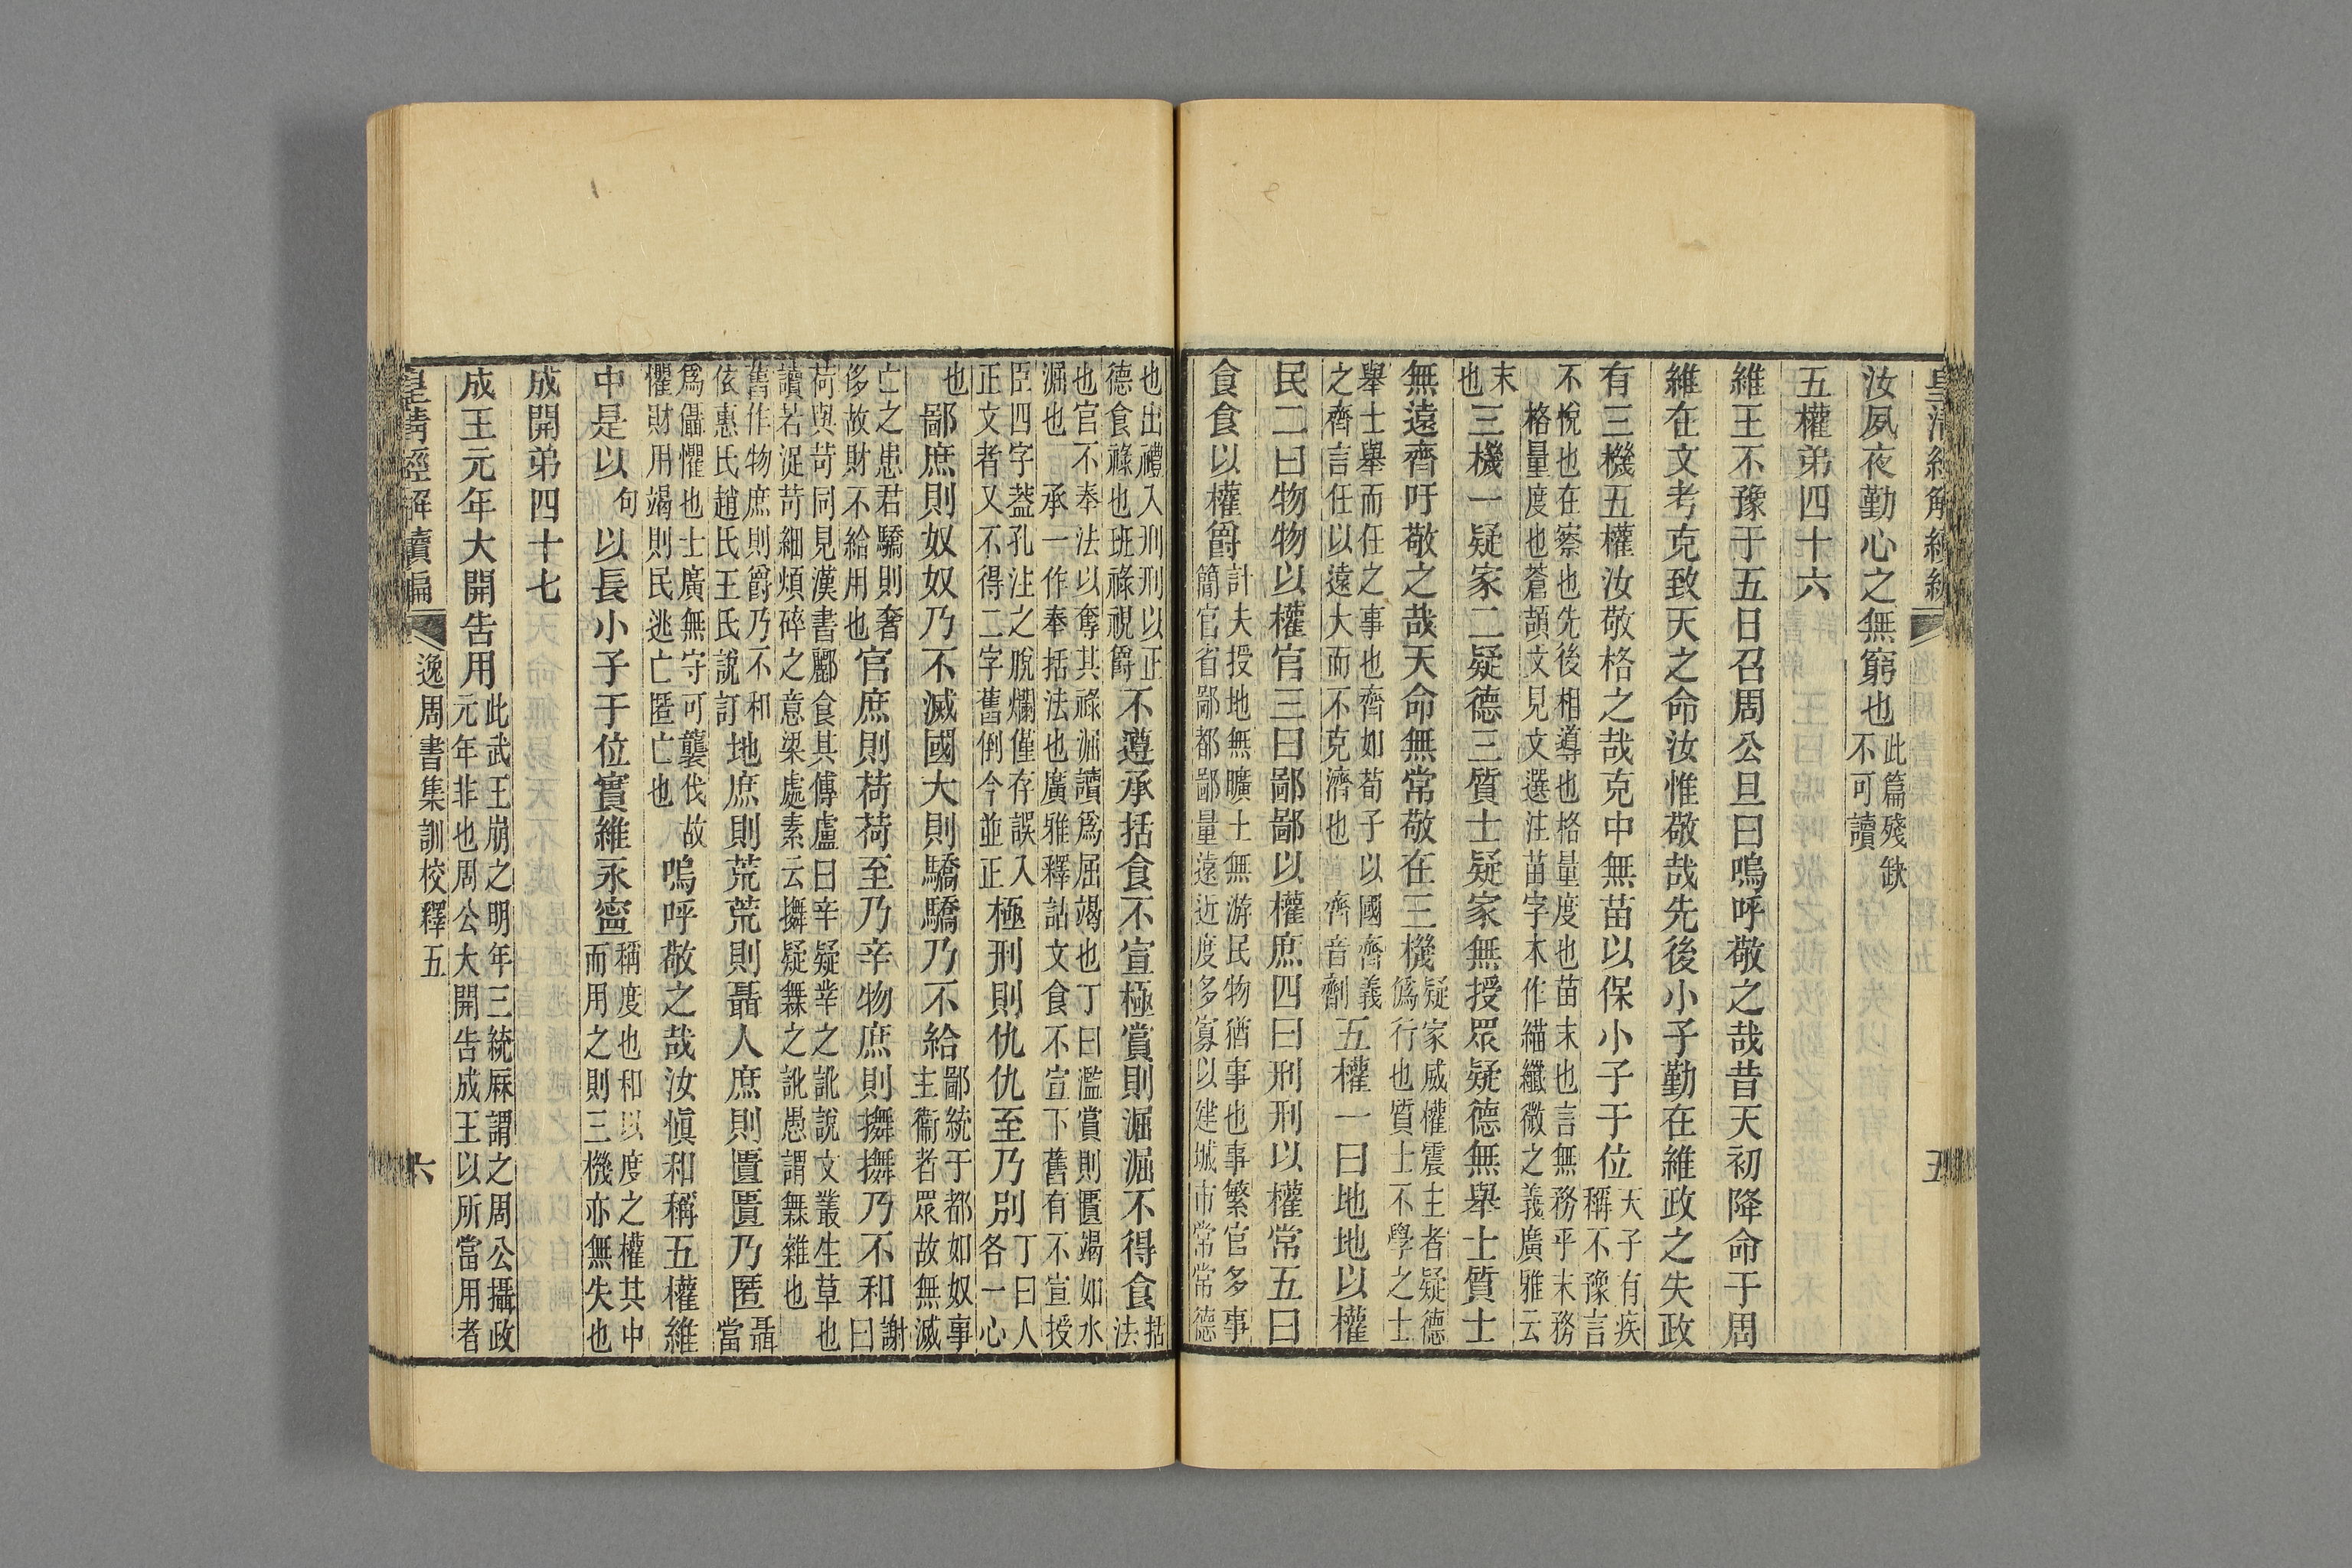 皇清經解續編
五
汝夙夜勤心之無窮也此篇殘缺不可讀
五權弟四十六
維王不豫于五日召周公旦曰嗚呼敬之哉昔天初降命于周
維在文考克致天之命汝惟敬哉先後小子勤在維政之失政
有三機五權汝敬格之哉克中無苗以保小子于位天子有疾稱不豫言
不悅也在察也先後相導也格量度也苗末也言無務乎末務格量度也蒼頡文見文選注苗字木作緢纖微之義廣雅云
末也三機一疑家二疑德三質士疑家無授眾疑德無舉士質士
無遠齊吁敬之哉天命無常敬在三機疑家威權震主者疑德僞行也質士不學之士
舉士舉而任之事也齊如荀子以國齊義之齊言任以遠大而不克濟也齊音劑五權一曰地地以權
民二曰物物以權官三曰鄙鄙以權庶四曰刑刑以權常五曰
食食以權爵計夫授地無曠土無游民物猶事也事繁官多事簡官省鄙都鄙量遠近度多寡以建城市常常德
也出禮入刑刑以正德食祿也班祿視爵不遵承括食不宣極賞則淈淈不得食括法
也官不奉法以奪其祿淈讀爲屈竭也丁曰濫賞則匱竭如水淈也承一作奉括法也廣雅釋詁文食不宣下舊有不宣授
臣四字葢孔注之脫爛僅存誤入正文者又不得二字舊倒今並正極刑則仇仇至乃別丁曰人各一心
也鄙庶則奴奴乃不滅國大則驕驕乃不給鄙統于都如奴事主衞者眾故無滅
亡之患君驕則奢侈故財不給用也官庶則荷荷至乃辛物庶則撫撫乃不和謝曰
荷與苛同見漢書酈食其傳盧曰辛疑㷀之訛說文叢生草也讀若浞苛細煩碎之意梁處素云撫疑橆之訛愚謂橆雜也
舊作物庶則爵乃不和依惠氏趙氏王氏說訂地庶則荒荒則聶人庶則匱匱乃匿聶當
爲儡懼也士廣無守可襲伐故懼財用竭則民逃亡匿亡也嗚呼敬之哉汝愼和稱五權維
中是以句以長小子于位實維永寧稱度也和以度之權其中而用之則三機亦無失也
成開弟四十七
成王元年大開告用此武王崩之明年三統厤謂之周公攝政元年非也周公大開告成王以所當用者
皇清經解續編
逸周書集訓校釋五
六